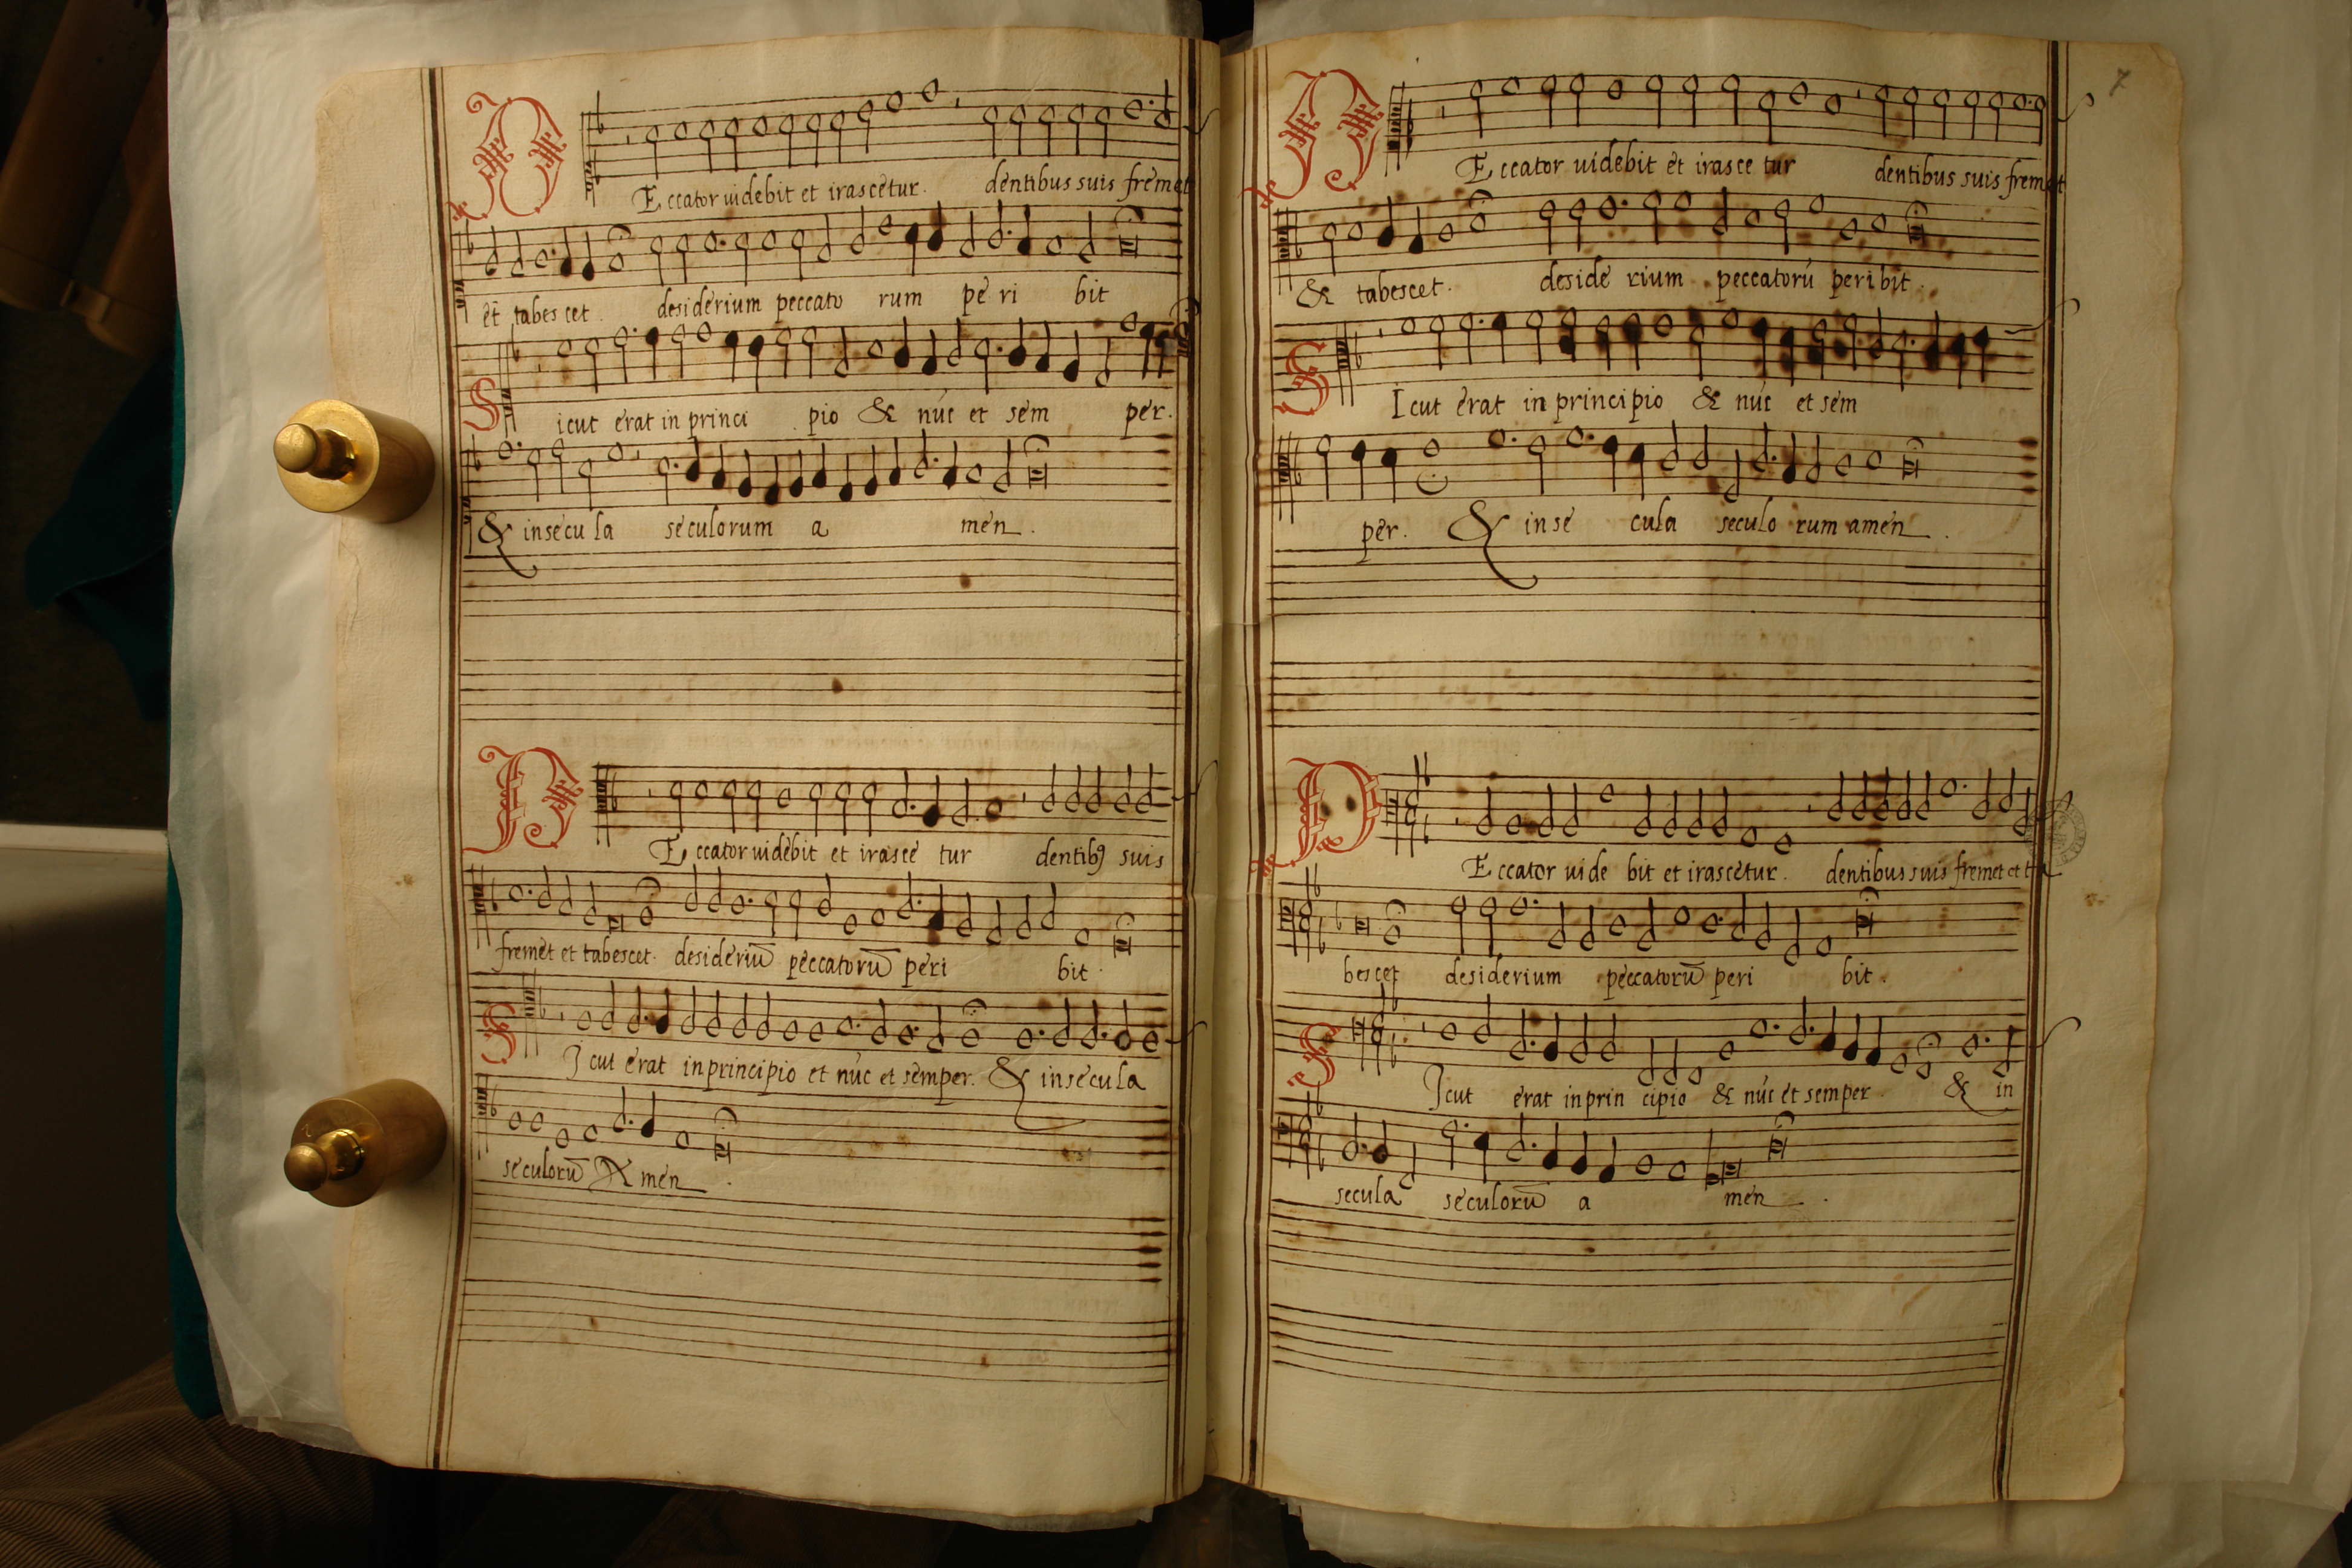 PEccator uidebit et irascetur. dentibus suis fremet
et tabescet. desiderium peccato rum pe ri bit
Sicut erat in princi pio & nũc et sem per.
& in secu la seculorum a men.
PEccator uidebit et irascetur dentibꝰ suis
fremet et tabescet. desideriū peccatorū peri bit.
SIcut erat in principio et nũc et semper. & in secula
seculorū Amen.
7
PEccator uidebit et irasce tur dentibus suis fremet
& tabescet. deside rium peccatorũ peribit.
SIcut erat in principio & nũc et sem
per. & in se cula seculo rum amen.
PEccator uide bit et irascetur. dentibus suis fremet et ta
bescet desiderium peccatorū peri bit.
SIcut erat in prin cipio & nũc et semper. & in
secula seculorū a men.